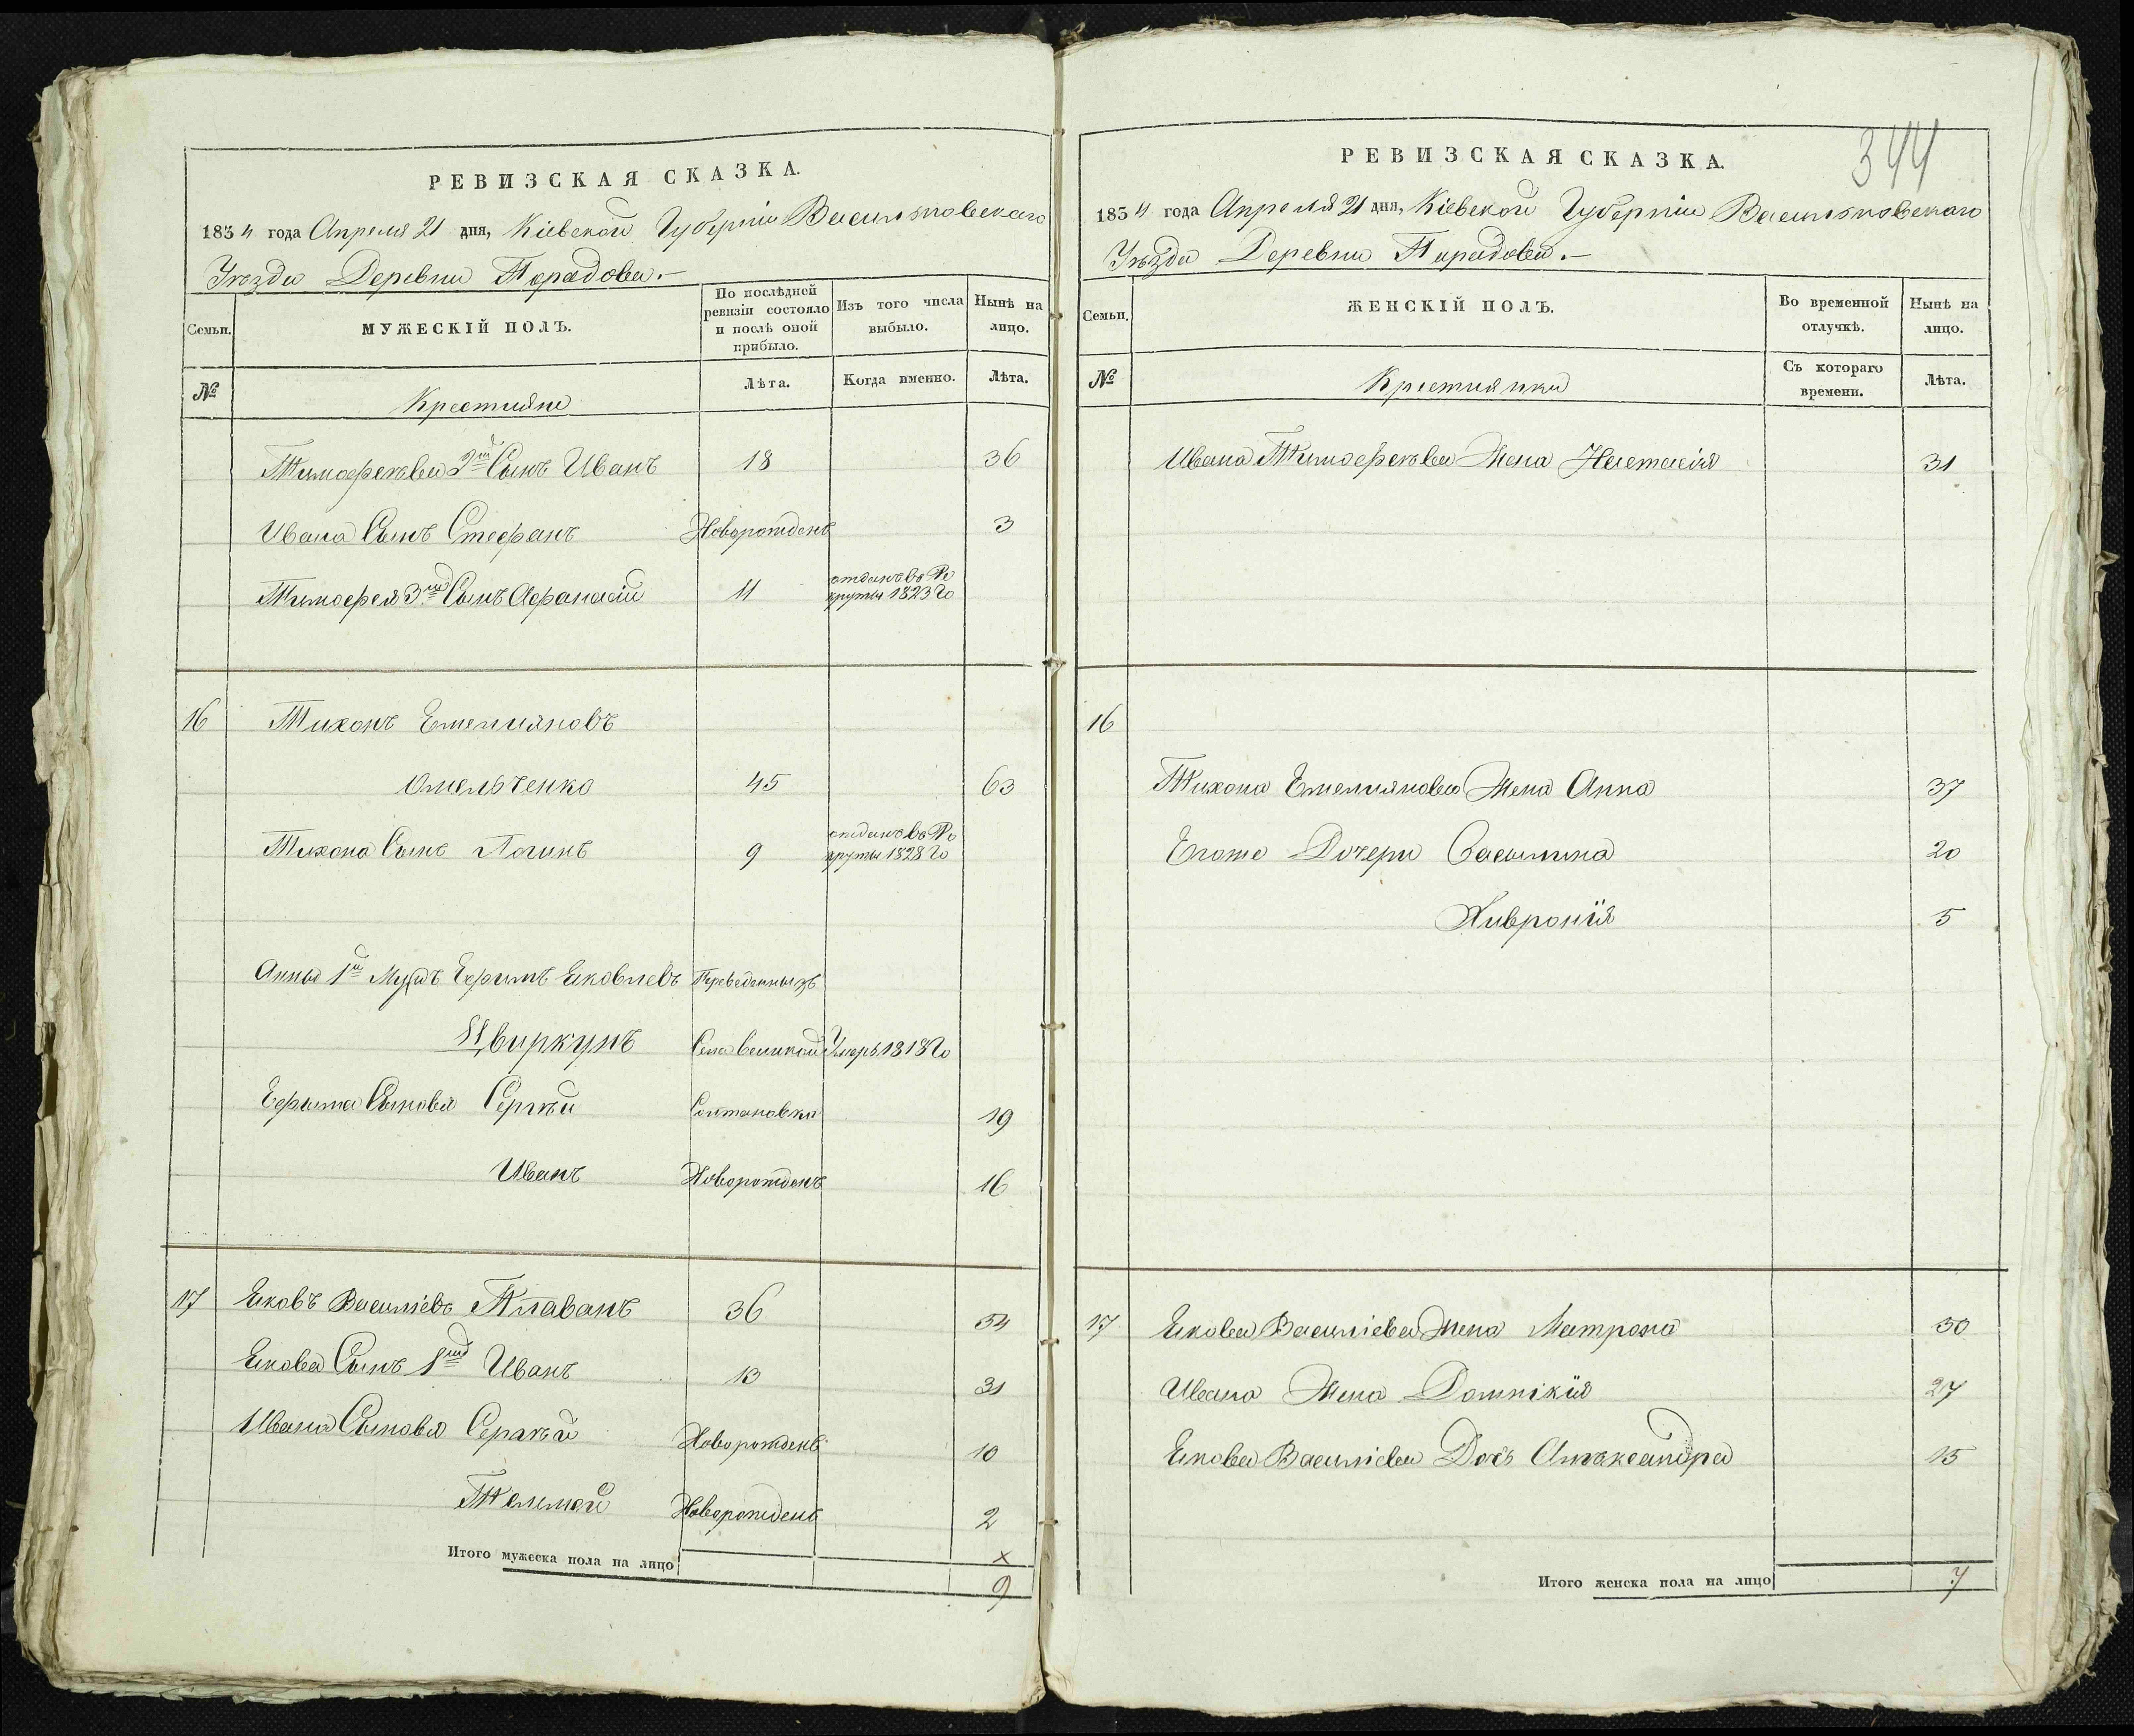 РЕВИЗСКАЯ СКАЗКА.
1834 года Апреля 21 дня, Кіевской Губерніи Васильковскаго
Уѣзда Деревни Парадова.-
Семьи.
МУЖЕСКІЙ ПОЛЪ.
По послѣдней ревизіи состояло и послѣ оной прибыло.
Изъ того числа выбыло.
Нынѣ на лицо.
№
Крестияне
Лѣта.
Когда именно.
Лѣта.
Тимофеева 2й Сынъ Иванъ 18 36
Ивана Сынъ Стефанъ Новорожденъ 3
Тимофея 3й Сынъ Афанасій 11 отданъ въ Рекруты 1823 Го
16 Тихонъ Емельяновъ
Омельченко 45 63
Тихона Сынъ Логинъ 9 отданъ въ Рекруты 1828 Го
Анны 1й Мужъ Ефимъ Яковлевъ Переведенны зъ
Цвиркунъ Села Великой Умеръ 1818 Го
Ефима Сыновя Сергѣй Солтановки 19
Иванъ Новорожденъ 16
17 Яковъ Василіевъ Плаванъ 36 54
Якова Сынъ 1й Иванъ 13 31
Ивана Сыновя Сергѣй Новорожденъ 10
Новорожденъ 2
Итого мужеска пола на лицо
х
9
344
РЕВИЗСКАЯ СКАЗКА.
1834 года Апреля 21 дня, Кіевской Губерніи Васильковскаго
Уѣзда Деревни Парадова.-
Семьи.
ЖЕНСКІЙ ПОЛЪ.
Во временной отлучкѣ.
Нынѣ на лицо.
№
Крестиянки
Съ котораго времени.
Лѣта.
Ивана Тимофеева Жена Настасія 31
16
Тихона Емельянова Жена Анна 37
Егоже Дочери Васылина 20
Хивронія 5
17 Якова Василіева Жена Матрона 50
Ивана Жена Домнікія 27
Якова Василіева Дочь Алѣксандра 15
Итого женска пола на лицо 7